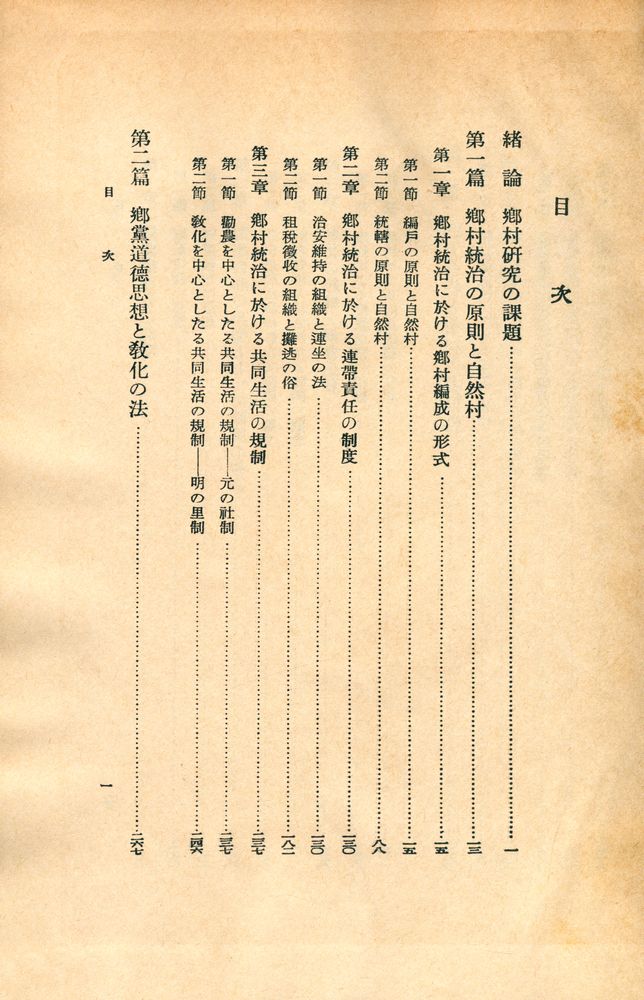 目次
緒論 鄕村硏究の課題 一
第一篇 鄕村統治の原則と自然村 一三
第一章 鄕村統治に於ける鄕村編成の形式 一五
第一節 編戶の原則と自然村 一五
第二節 統轄の原則と自然村 八八
第二章 鄕村統治に於ける連帶責任の制度 一三〇
第一節 治安維持の組織と連坐の法 一三〇
第二節 租稅徵收の組織と攤逃の俗 一八二
第三章 鄕村統治に於ける共同生活の規制 二三七
第一節 勸農を中心としたる共同生活の規制――元の社制 二三七
第二節 敎化を中心としたる共同生活の規制――明の里制 二四六
第二篇 鄕黨道德思想と敎化の法 二六七
目次 一